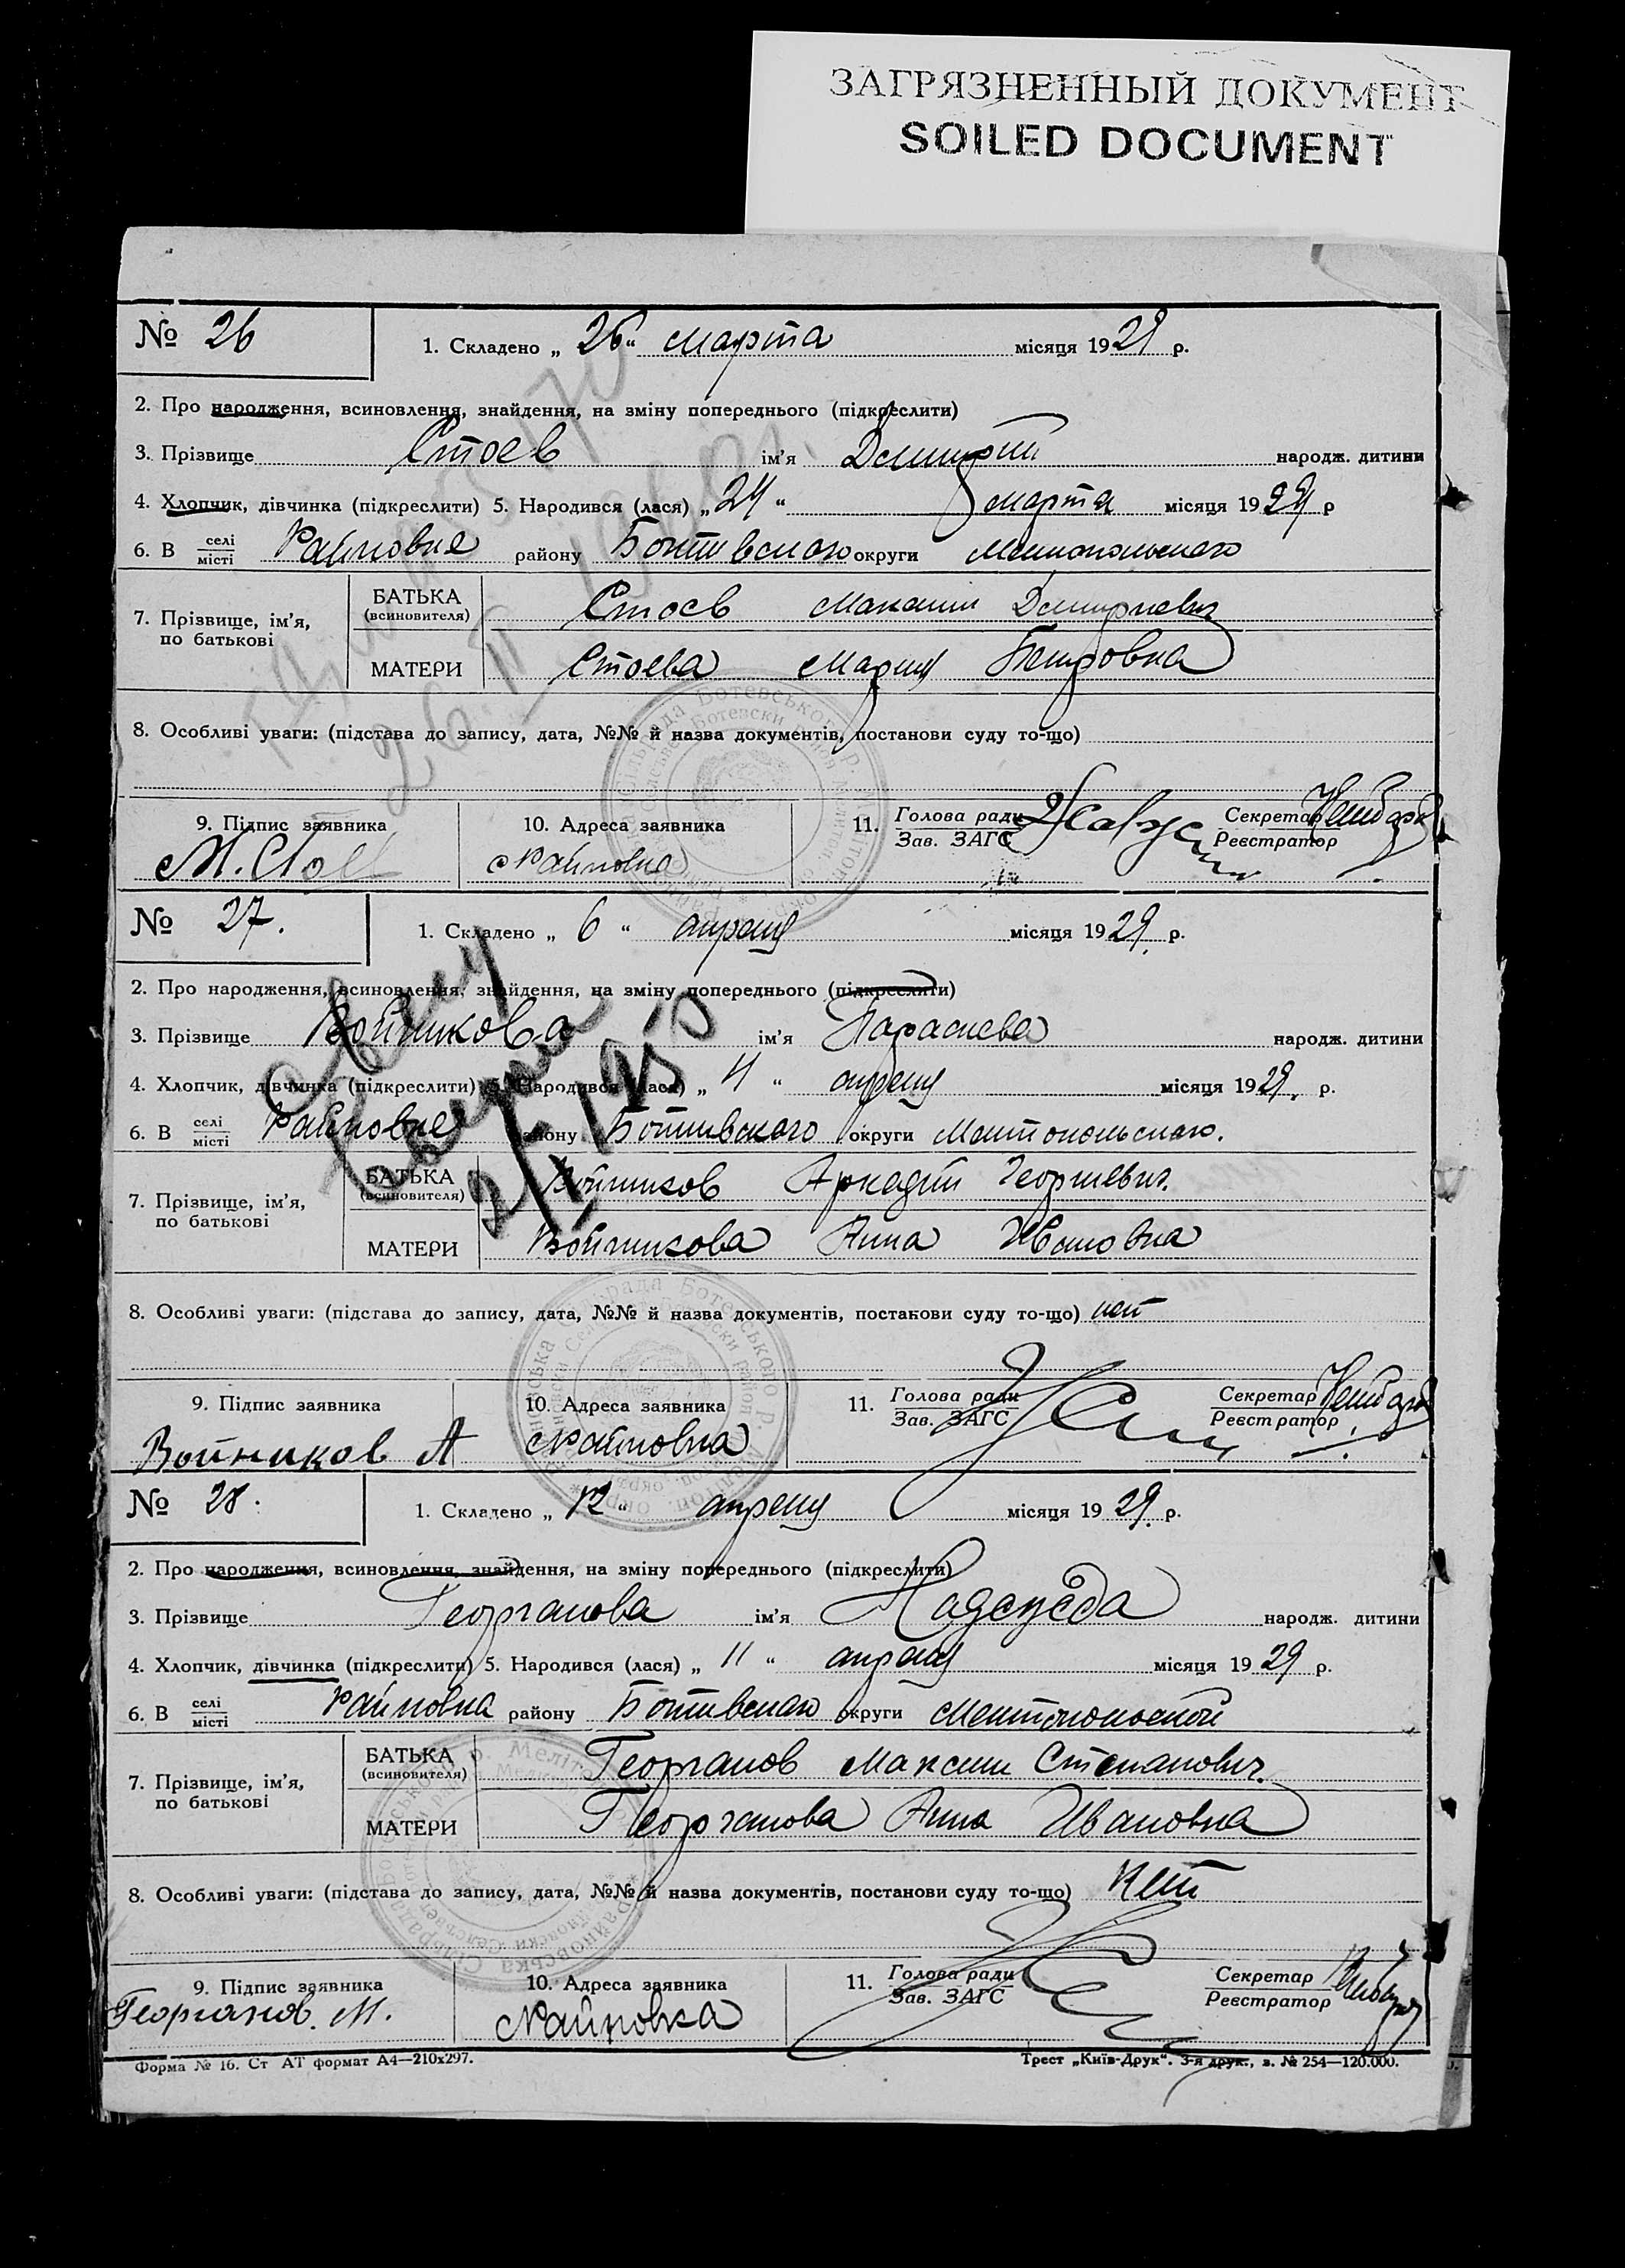 ЗАГРЯЗНЕННЫЙ ДОКУМЕНТ
SOILED DOCUMENT
№ 26
1. Складено „ 26 “ марта місяця 1929 р.
2. Про народження, всиновлення, знайдення, на зміну попереднього (підкреслити)
3. Прізвище Стоев ім'я Дмитрий народж. дитини
4. Хлопчик, дівчинка (підкреслити) 5. Народився (лася) „ 24 “ марта місяця 1929 р
6. В селі місті Райновке району Ботивского округи Мелитопольского
7. Прізвище, ім'я, по батькові
БАТЬКА (всиновителя) Стоев Максим Дмитриевич
МАТЕРИ Стоева Мария Петровна
8. Особливі уваги: (підстава до запису, дата, №№ й назва документів, постанови суду то-що)
9. Підпис заявника
10. Адреса заявника
11. Голова ради Зав. ЗАГС
Секретар Реєстратор
М. Стоев
Райновка
№ 27.
1. Складено „ 6 “ апреля місяця 1929. р.
2. Про народження, всиновлення, знайдення, на зміну попереднього (підкреслити)
3. Прізвище Войникова ім'я Параскева народж. дитини
4. Хлопчик, дівчинка (підкреслити) 5. Народився (лася) „ 4 “ апреля місяця 1929. р.
6. В селі місті Райновке району Ботивского округи Мелитопольского.
7. Прізвище, ім'я, по батькові
БАТЬКА (всиновителя) Войников Аркадий Георгиевич.
МАТЕРИ Войникова Анна Ивановна
8. Особливі уваги: (підстава до запису, дата, №№ й назва документів, постанови суду то-що) нет
9. Підпис заявника
10. Адреса заявника
11. Голова ради Зав. ЗАГС
Секретар Реєстратор
Войников А
Райновка
№ 28.
1. Складено „ 12 “ апреля місяця 1929. р.
2. Про народження, всиновлення, знайдення, на зміну попереднього (підкреслити)
3. Прізвище Георганова ім'я Надежда народж. дитини
4. Хлопчик, дівчинка (підкреслити) 5. Народився (лася) „ 11 “ апреля місяця 1929 р.
6. В селі місті Райновка району Ботивского округи Мелитопольской
7. Прізвище, ім'я, по батькові
БАТЬКА (всиновителя) Георганов Максим Степанович.
МАТЕРИ Георганова Анна Ивановна
8. Особливі уваги: (підстава до запису, дата, №№ й назва документів, постанови суду то-що) Нет
9. Підпис заявника
10. Адреса заявника
11. Голова ради Зав. ЗАГС
Секретар Реєстратор
Георганов. М.
Райновка
Форма № 16. Ст АТ формат А4—210х297.
Трест „Київ-Друк“. 3-я друк., з. № 254—120.000.